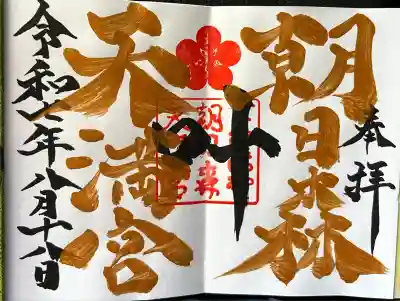 奉拝
朝日森
天満宮
叶
令和七年八月十八日